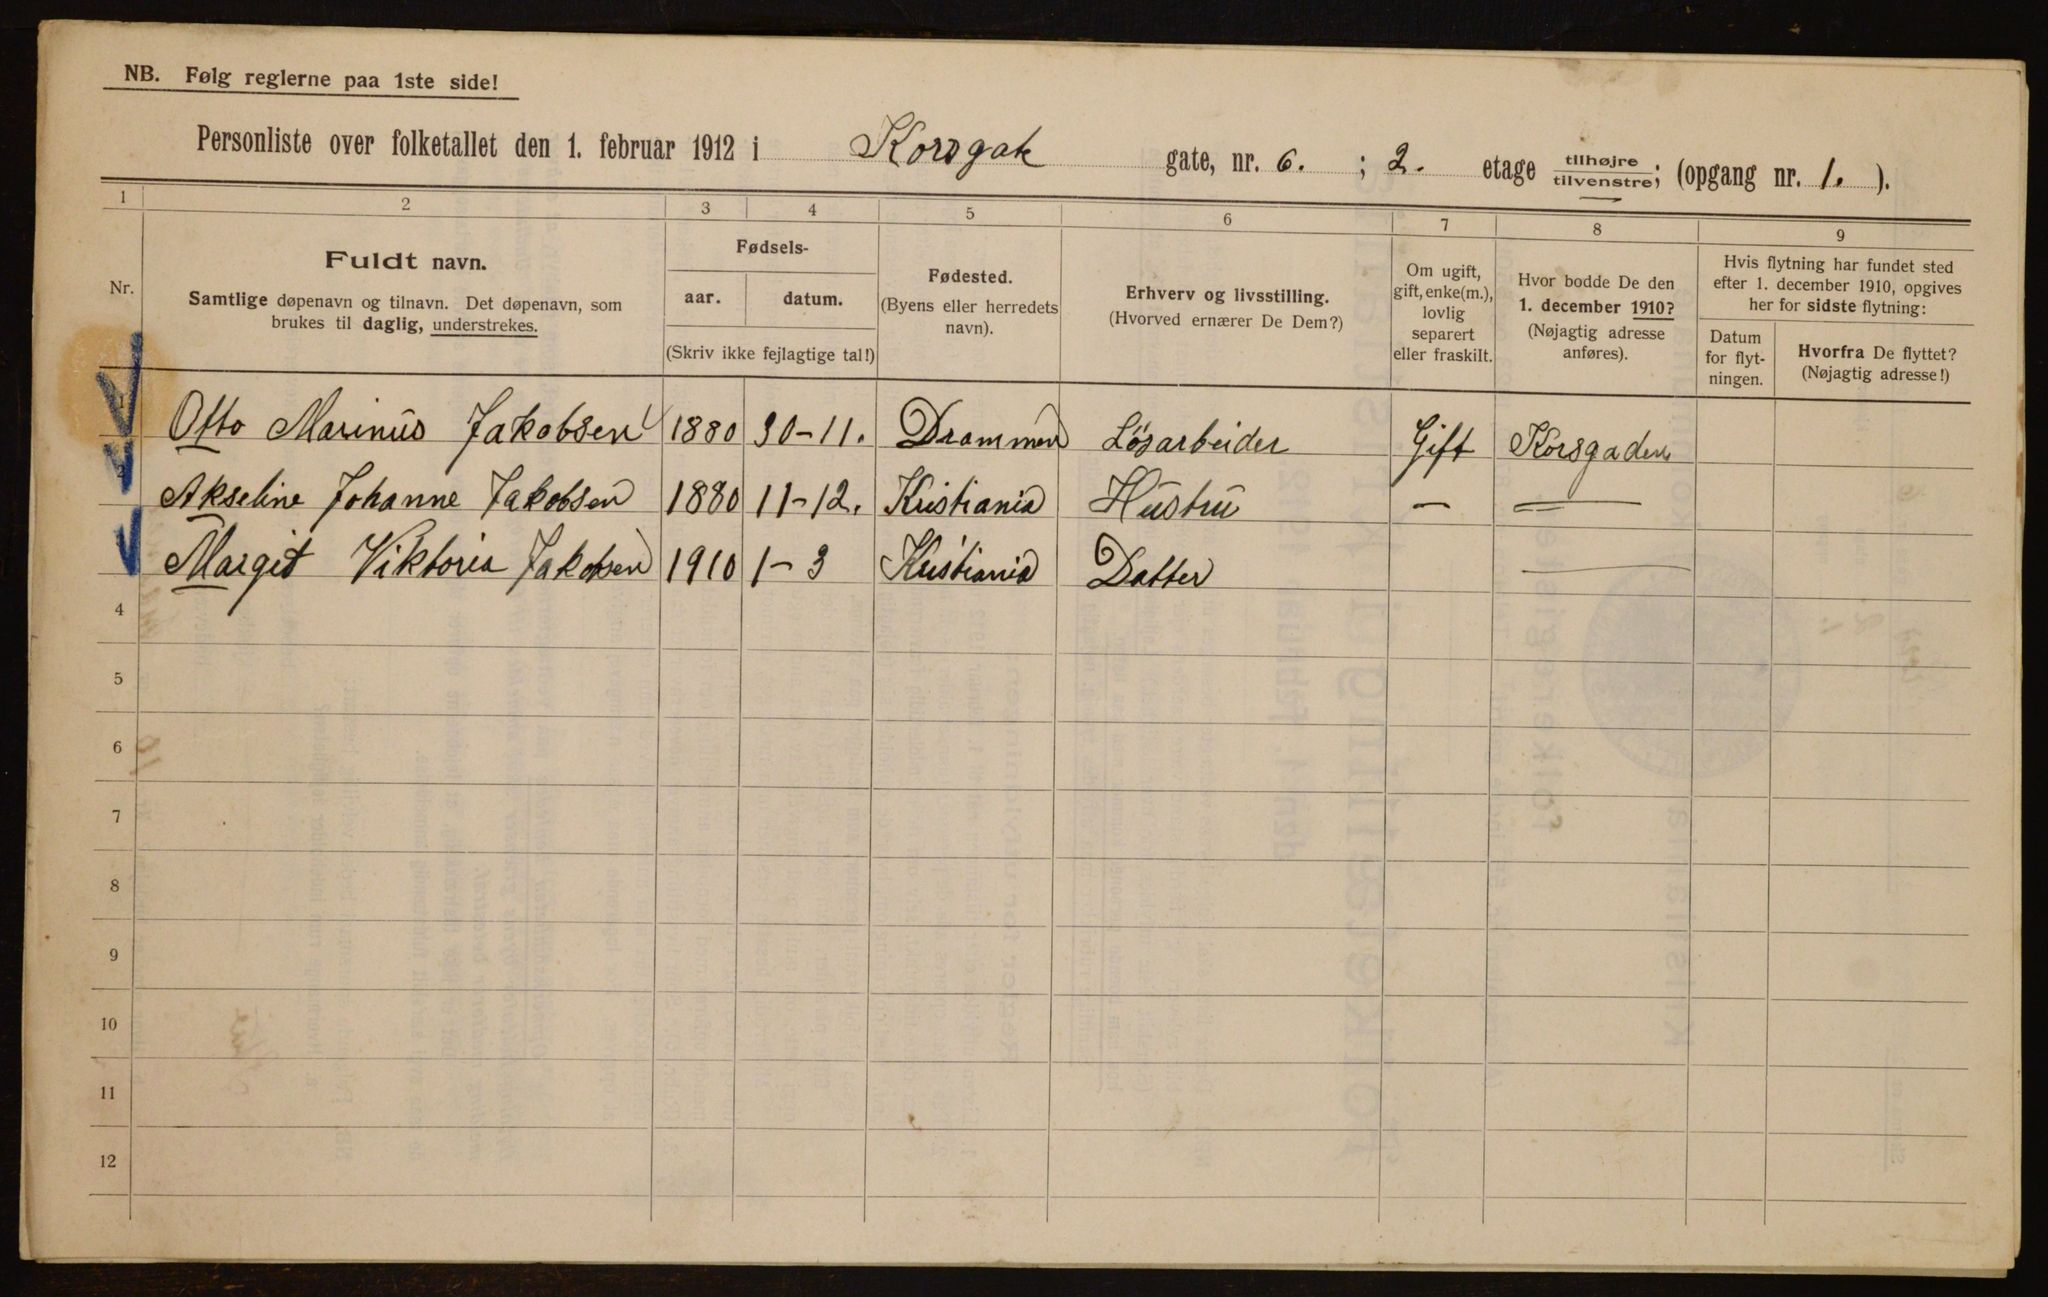 NB. Følg reglerne paa 1ste side!
Personliste over folketallet den 1. februar 1912 i Korsgate gate, nr. 6. ; 2. etage tilhøjre tilvenstre; (opgang nr. 1. ).
1 2 3 4 5 6 7 8 9
Nr.
Fuldt navn.
Samtlige døpenavn og tilnavn. Det døpenavn, som
brukes til daglig, understrekes.
Fødsels-
aar. datum.
(Skriv ikke fejlagtige tal!)
Fødested.
(Byens eller herredets
navn).
Erhverv og livsstilling.
(Hvorved ernærer De Dem?)
Om ugift,
gift, enke(m.),
lovlig
separert
eller fraskilt.
Hvor bodde De den
1. december 1910?
(Nøjagtig adresse
anføres).
Hvis flytning har fundet sted
efter 1. december 1910, opgives
her for sidste flytning:
Datum
for flyt-
ningen.
Hvorfra De flyttet?
(Nøjagtig adresse!)
1 Otto Marinus Jakobsen 1880 30-11. Drammen Løsarbeider Gift Korsgaden
2 Akseline Johanne Jakobsen 1880 11-12. Kristiania Hustru — —
Margit Viktoria Jakobsen 1910 1-3 Kristiania Datter —
4
5
6
7
8
9
10
11
12